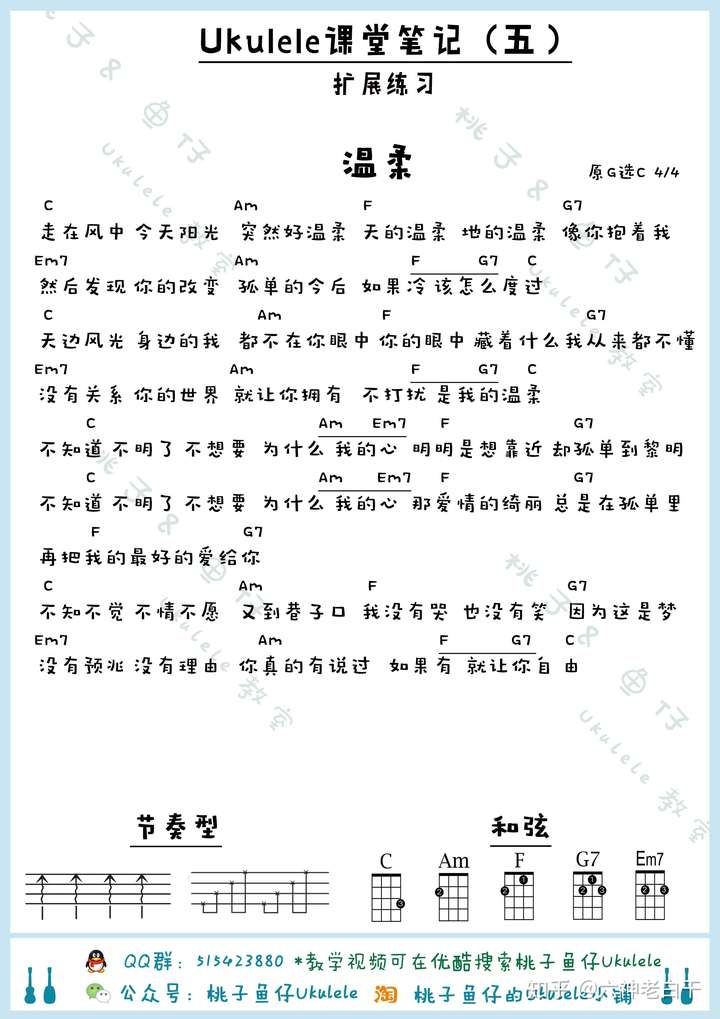 Ukulele课堂笔记（五）
扩展练习
温柔
原G选C 4/4
C Am F G7
走在风中 今天阳光 突然好温柔 天的温柔 地的温柔 像你抱着我
Em7 Am F G7 C
然后发现 你的改变 孤单的今后 如果冷 该怎么度过
C Am F G7
天边风光 身边的我 都不在你眼中 你的眼中 藏着什么我从来都不懂
Em7 Am F G7 C
没有关系 你的世界 就让你拥有 不打扰 是我的温柔
C Am Em7 F G7
不知道 不明了 不想要 为什么 我的心 明明是想靠近 却孤单到黎明
C Am Em7 F G7
不知道 不明了 不想要 为什么 我的心 那爱情的绮丽 总是在孤单里
F G7
再把我的最好的爱给你
C Am F G7
不知不觉 不情不愿 又到巷子口 我没有哭 也没有笑 因为这是梦
Em7 Am F G7 C
没有预兆 没有理由 你真的有说过 如果有 就让你自由
桃子&鱼仔
Ukulele教室
桃子&鱼仔
Ukulele教室
桃子&鱼仔
Ukulele教室
桃子&鱼仔
Ukulele教室
节奏型 和弦
C Am F G7 Em7
QQ群：515423880 *教学视频可在优酷搜索桃子鱼仔Ukulele
公众号：桃子鱼仔Ukulele 淘 桃子鱼仔的Ukulele小铺
知乎 @六神老白干